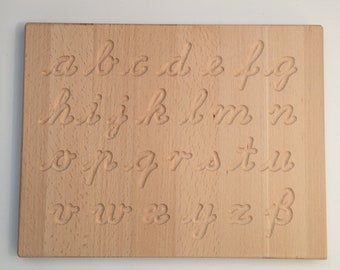 a b c d e f g
h i j k l m n
o p q r s t u
v w x y z ß